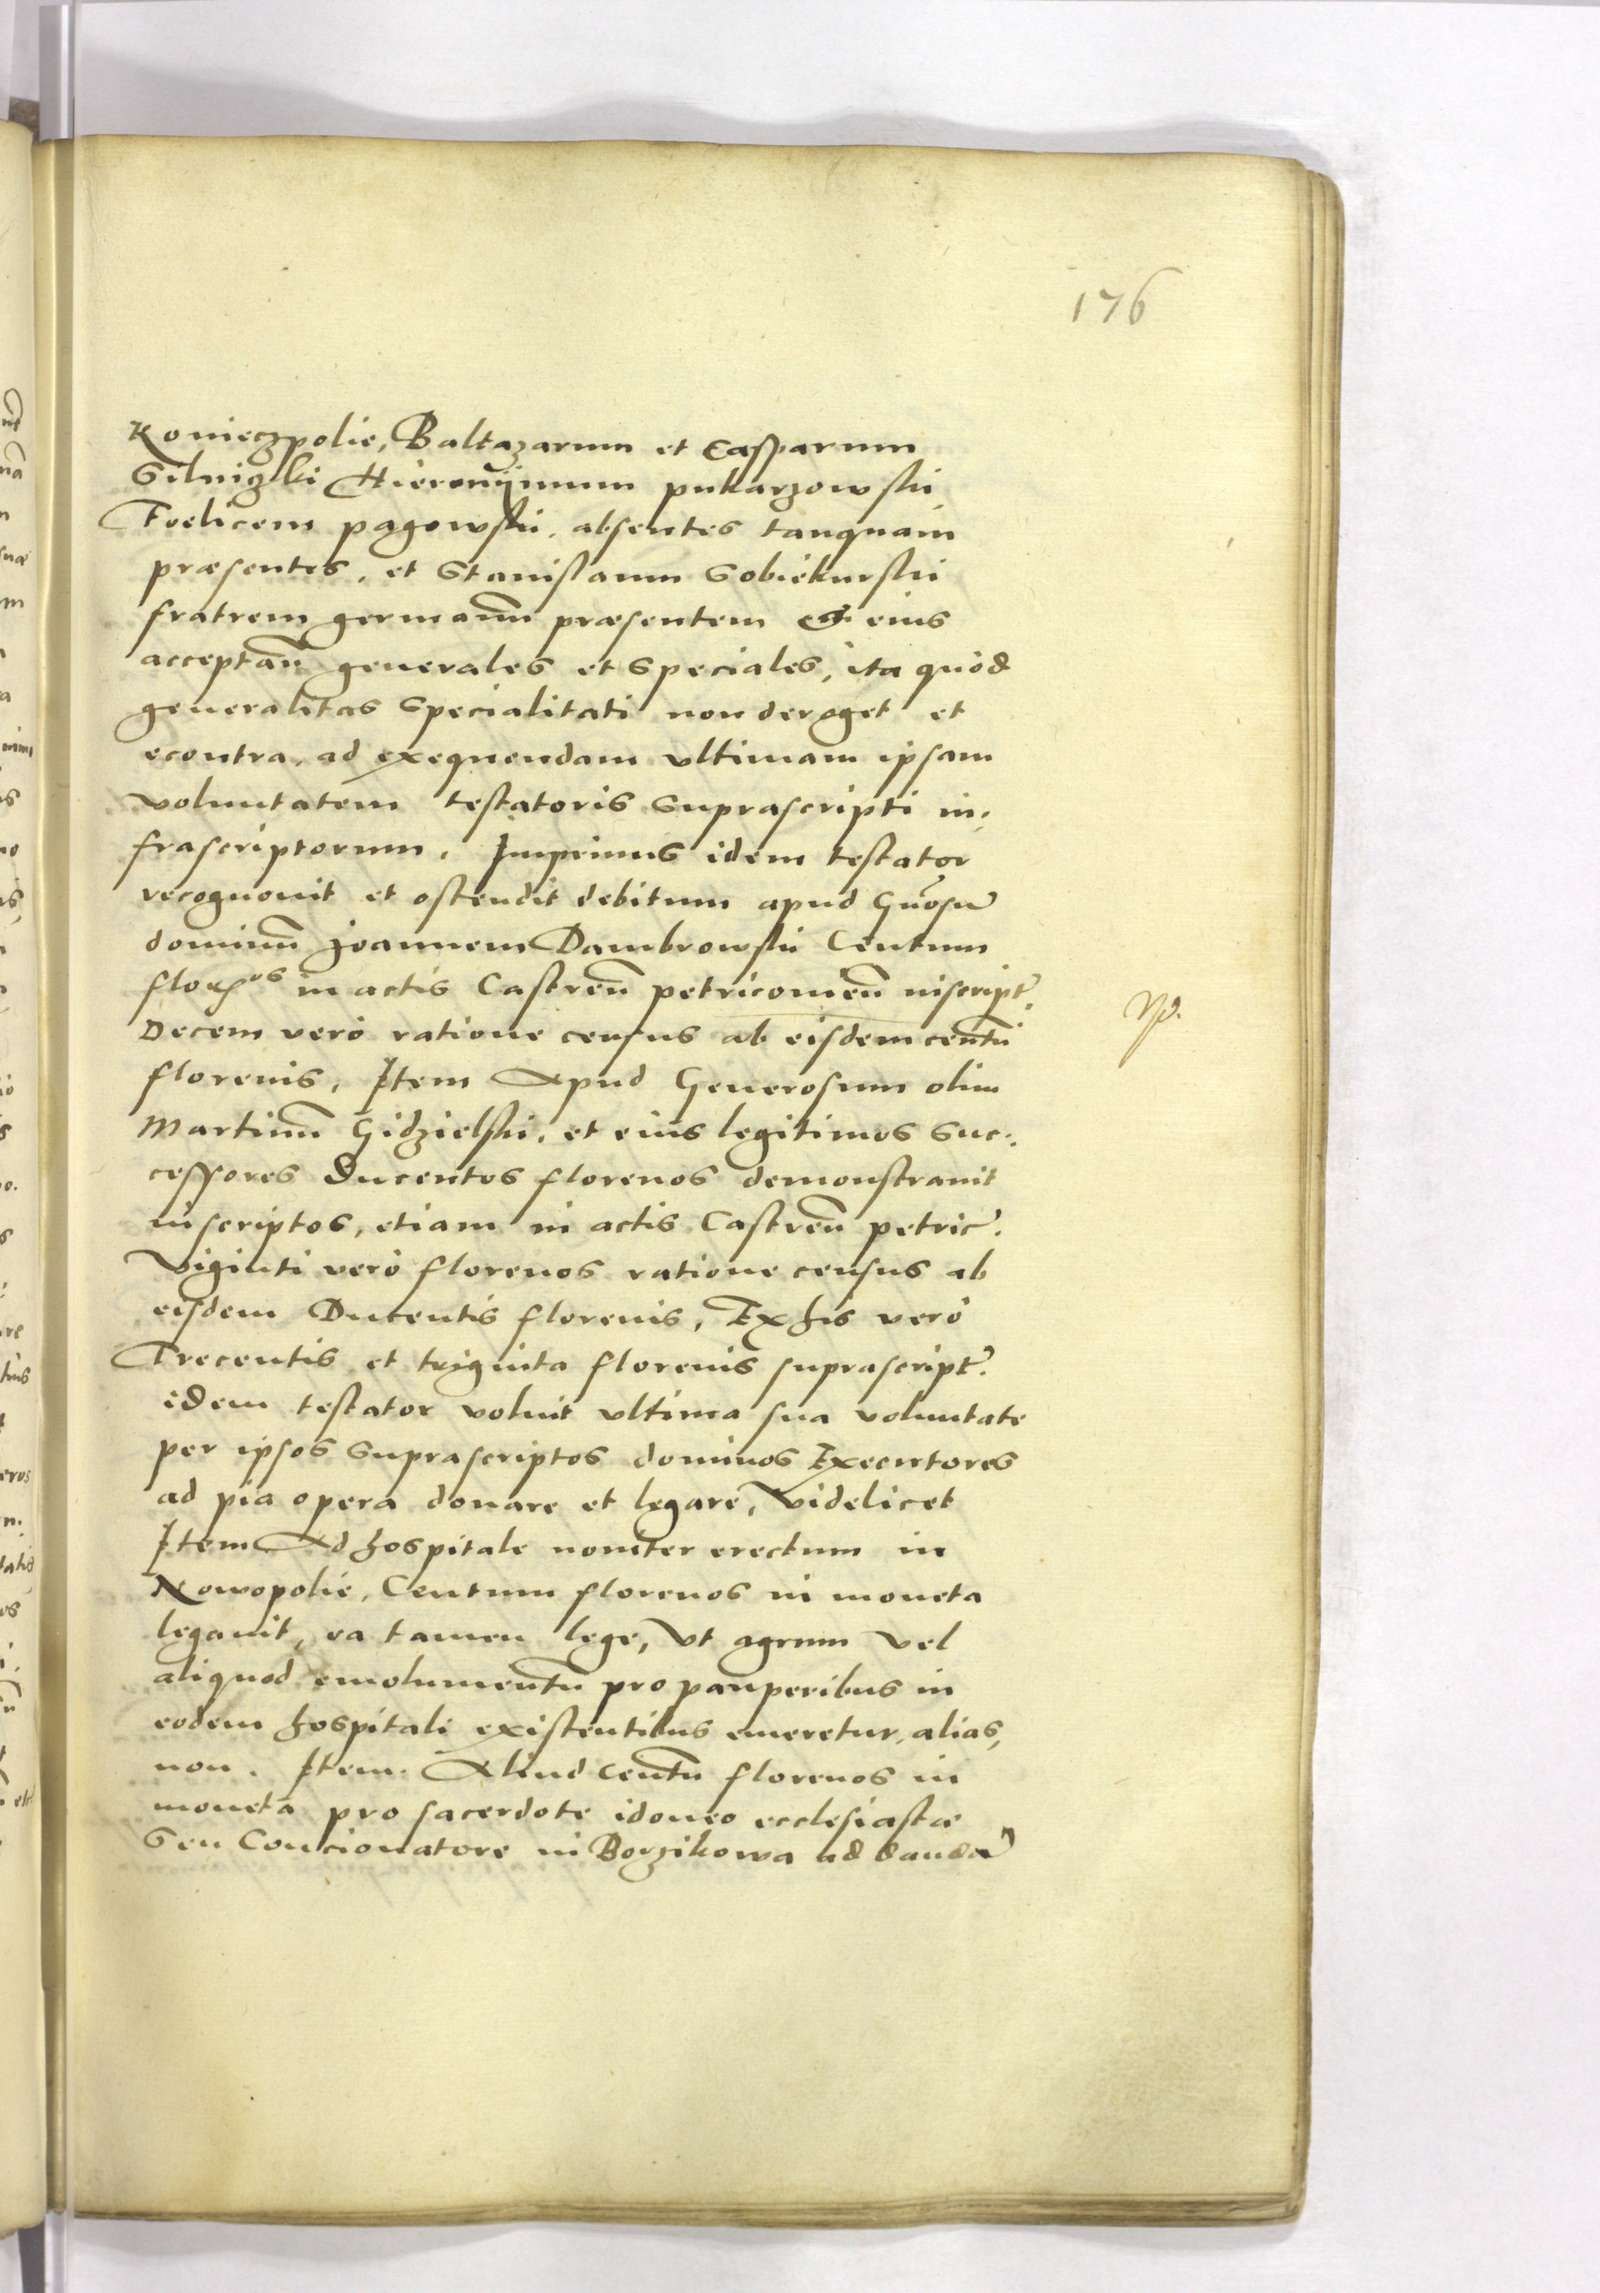 176
Konieczpolie, Baltazarum et Casparum
Silnizki Hieronijmum pukarzowskii
Foelicem pagowskii, absentes tanquam
præsentes, et Stanislaum Sobiekurskii
fratrem germanũ præsentem et eius
acceptañ generales et speciales, ita quòd
generalitas specialitati non deroget et
econtra, ad exequendam vltimam ipsam
voluntatem testatoris suprascripti in,
frascriptorum. Imprimus idem testator
recognouit et ostendit debitum apud Gñosũ
dominũ Joannem Dambrowskii Centum
in actis Castreñ petricouieñ inscript.
Decem verò ratione census ab eisdem centũ
florenis, Item Apud Generosum olim
Martinũ Gidzielskii, et eius legitimos suc:
cessores Ducentos florenos demonstrauit
inscriptos, etiam in actis Castreñ petric.
Viginti verò florenos ratione census ab
eisdem Ducentis florenis, Ex his verò
Trecentis et triginta florenis suprascript.
idem testator voluit vltima sua voluntate
per ipsos suprascriptos dominos Executores
ad pia opera donare et legare, Videlicet
Item Ad hospitale nouiter erectum in
Nowopolie, Centum florenos in moneta
legauit, ea tamen lege, vt agrum vel
aliquod emolumentũ pro pauperibus in
eodem hospitali existentibus emeretur, alias,
non. Item. Aliud centũ florenos in
moneta pro sacerdote idoneo ecclesiastæ
Seu Concionatore in Borzikowa ad dandũ